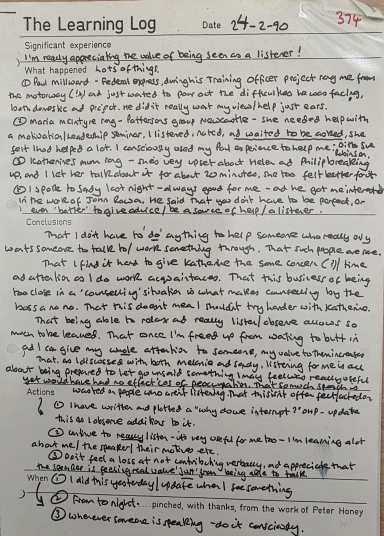 374
The Learning Log Date 24-2-90
Significant experience
I'm really appreciating the value of being seen as a listener!
What happened Lots of things.
① Paul Millward - Federal Express, during his Training Officer project rang me from
the motorway (!) and just wanted to pour out the difficulties he was facing,
both domestic and project. He didn't really want my view/help just ears.
② Maria McIntyre rang - Pattersons group Newcastle - she needed help with
a motivation/leadership seminar. I listened, noted, and waited to be asked, she
felt I had helped a lot. I consciously used my Paul experience to help me. Ditto Sue Robinson.
③ Katherine's mum rang - she's very upset about Helen and Philip breaking
up, and I let her talk about it for about 20 minutes, she too felt better for it
④ I spoke to Sady last night - always good for me - and he got me interested
in the work of John Rowan. He said that you don't have to be perfect, or
even 'better' to give advice / be a source of help / a listener.
Conclusions
That I don't have to do anything to help someone who really only
wants someone to talk to / work something through. That such people are me.
That I find it hard to give Katharine the same concern (?) / time
and attention as I do work acquaintances. That this business of being
too close in a 'counselling' situation is what makes counselling by the
boss a no no. That this doesn't mean I shouldn't try harder with Katherine.
That being able to relax and really listen/observe allows so
much to be learned. That once I'm freed up from waiting to butt in
and I can give my whole attention to someone, my value to them increases
That, as I discussed with both Melanie and Sady, listening for me is all
about being prepared to let go unsaid something I may feel was really useful
yet would have had no effect cos of preoccupation. That so much speech is
wasted on people who aren't listening. That this isn't often factored on
Actions
① I have written and plotted a "why do we interrupt?" OHP - update
this as I observe additions to it.
② Continue to really listen - it's very useful for me too - I'm learning a lot
about me, the speaker, their motives etc.
③ Don't feel a loss at not contributing verbally, and appreciate that
the speaker is feeling real value 'just' from being able to talk
When ① I did this yesterday / update when I see something
② From tonight. ...pinched, with thanks, from the work of Peter Honey
③ Whenever someone is speaking - do it consciously.